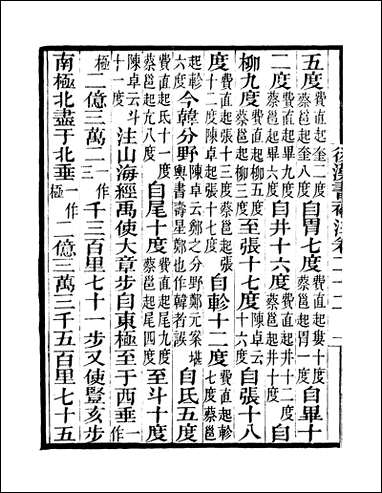 後漢書補注卷二十二　一
五度費直起奎二度蔡邕起奎八度自胃七度費直起婁十度蔡邕起胃一度自畢十
二度費直起畢九度蔡邕起畢六度自井十六度費直起井十二度蔡邕起井十度自
柳九度費直起柳五度蔡邕起柳三度至張十七度陳卓云十六度自張十八
度費直起張十三度蔡邕起張十二度陳卓起張十七度自軫十二度費直起軫七度蔡邕
起軫六度今韓分野陳卓云鄭之分野鄭元案堪輿書壽星鄭也作韓者誤自氐五度
費直起氐十一度蔡邕起亢八度自尾十度費直起尾九度蔡邕起尾四度至斗十度
陳卓云斗十一度注山海經禹使大章步自東極至于西垂一作
極二億三萬二一作三千三百里七十一步又使豎亥步
南極北盡于北垂一作極二億三萬三千五百里七十五